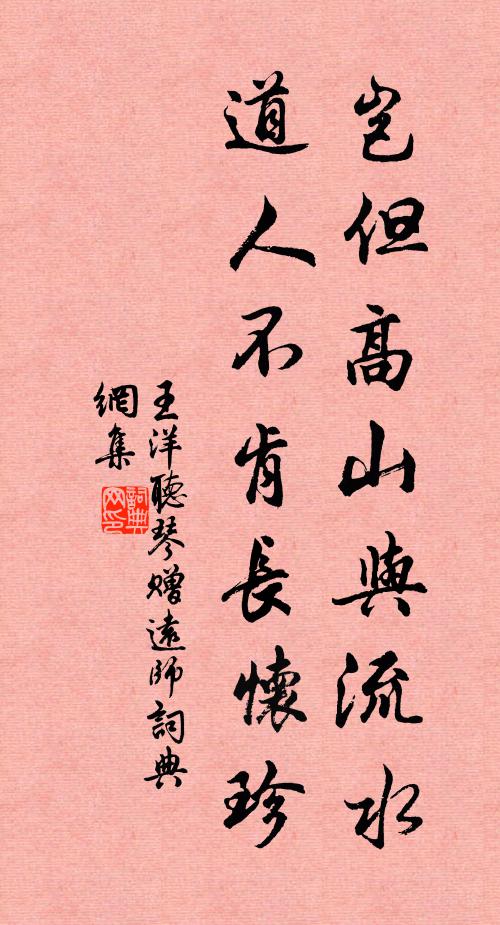 豈但高山與流水
道人不肯長懷珍
王洋聽琴贈遠師詞典
網集
詞典
网印